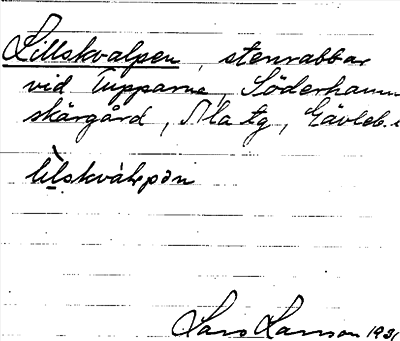 Lillskvalpen, stenrabbar
vid Tupparne, Söderhamns
skärgård, Ala tg, Gävleb. l
lìlskvàlpən
Lars Larsson 1931